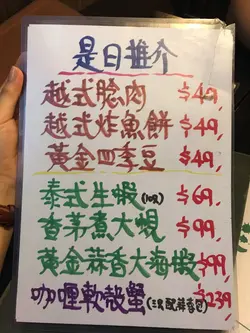 是日推介
越式脍肉 $49,
越式炸魚餅 $49,
黃金四季豆 $49,
泰式生蝦(10隻) $69,
香茅煮大蜆 $99,
黃金蒜香大海蝦 $99,
咖喱軟殼蟹(三隻配蒜香包) $239